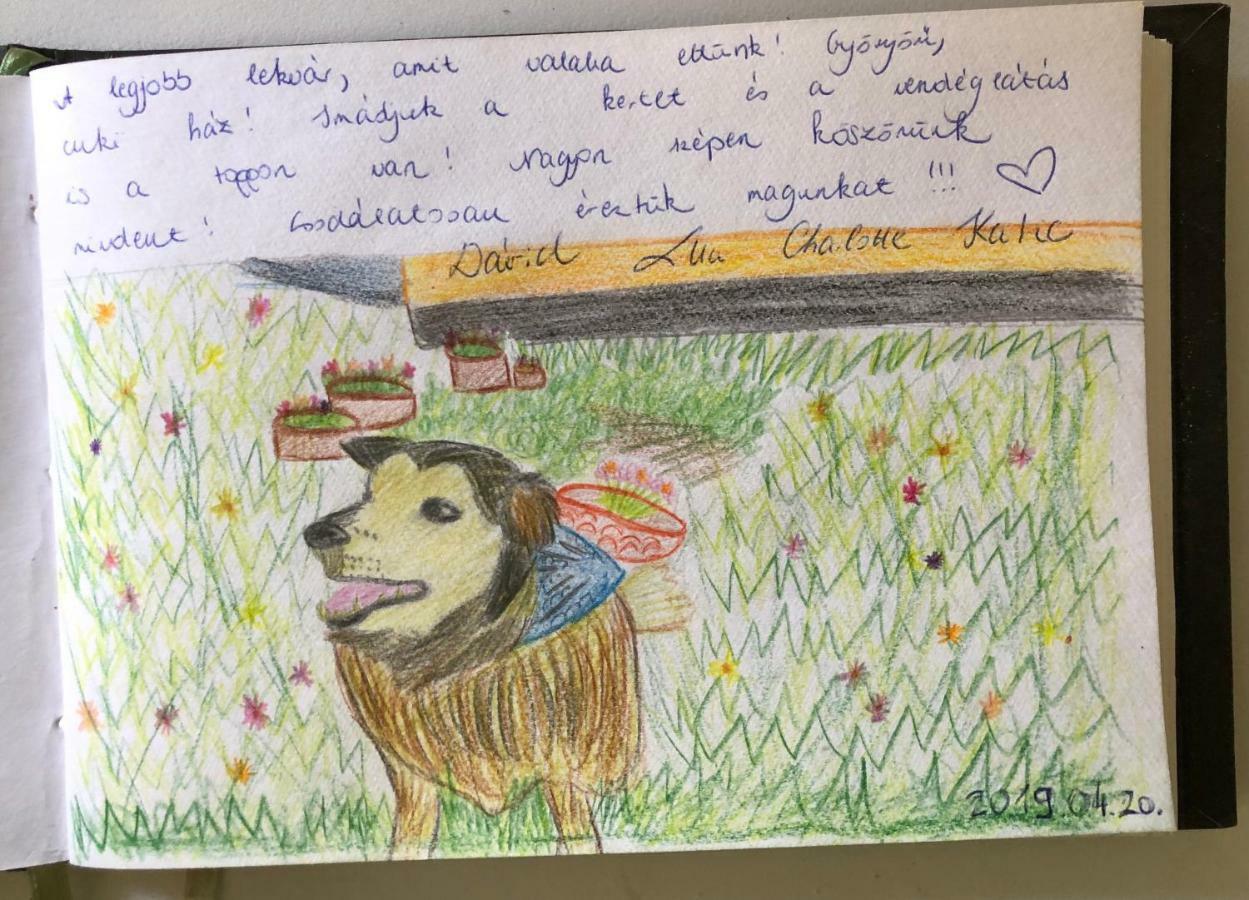 A legjobb lekvár, amit valaha ettünk! Gyönyörű,
cuki ház! Imádjuk a kertet és a vendéglátás
is a toppon van! Nagyon szépen köszönünk
mindent! Csodálatosan éreztük magunkat !!! ♡
Dávid Lila Charlotte Katie
2019.04.20.